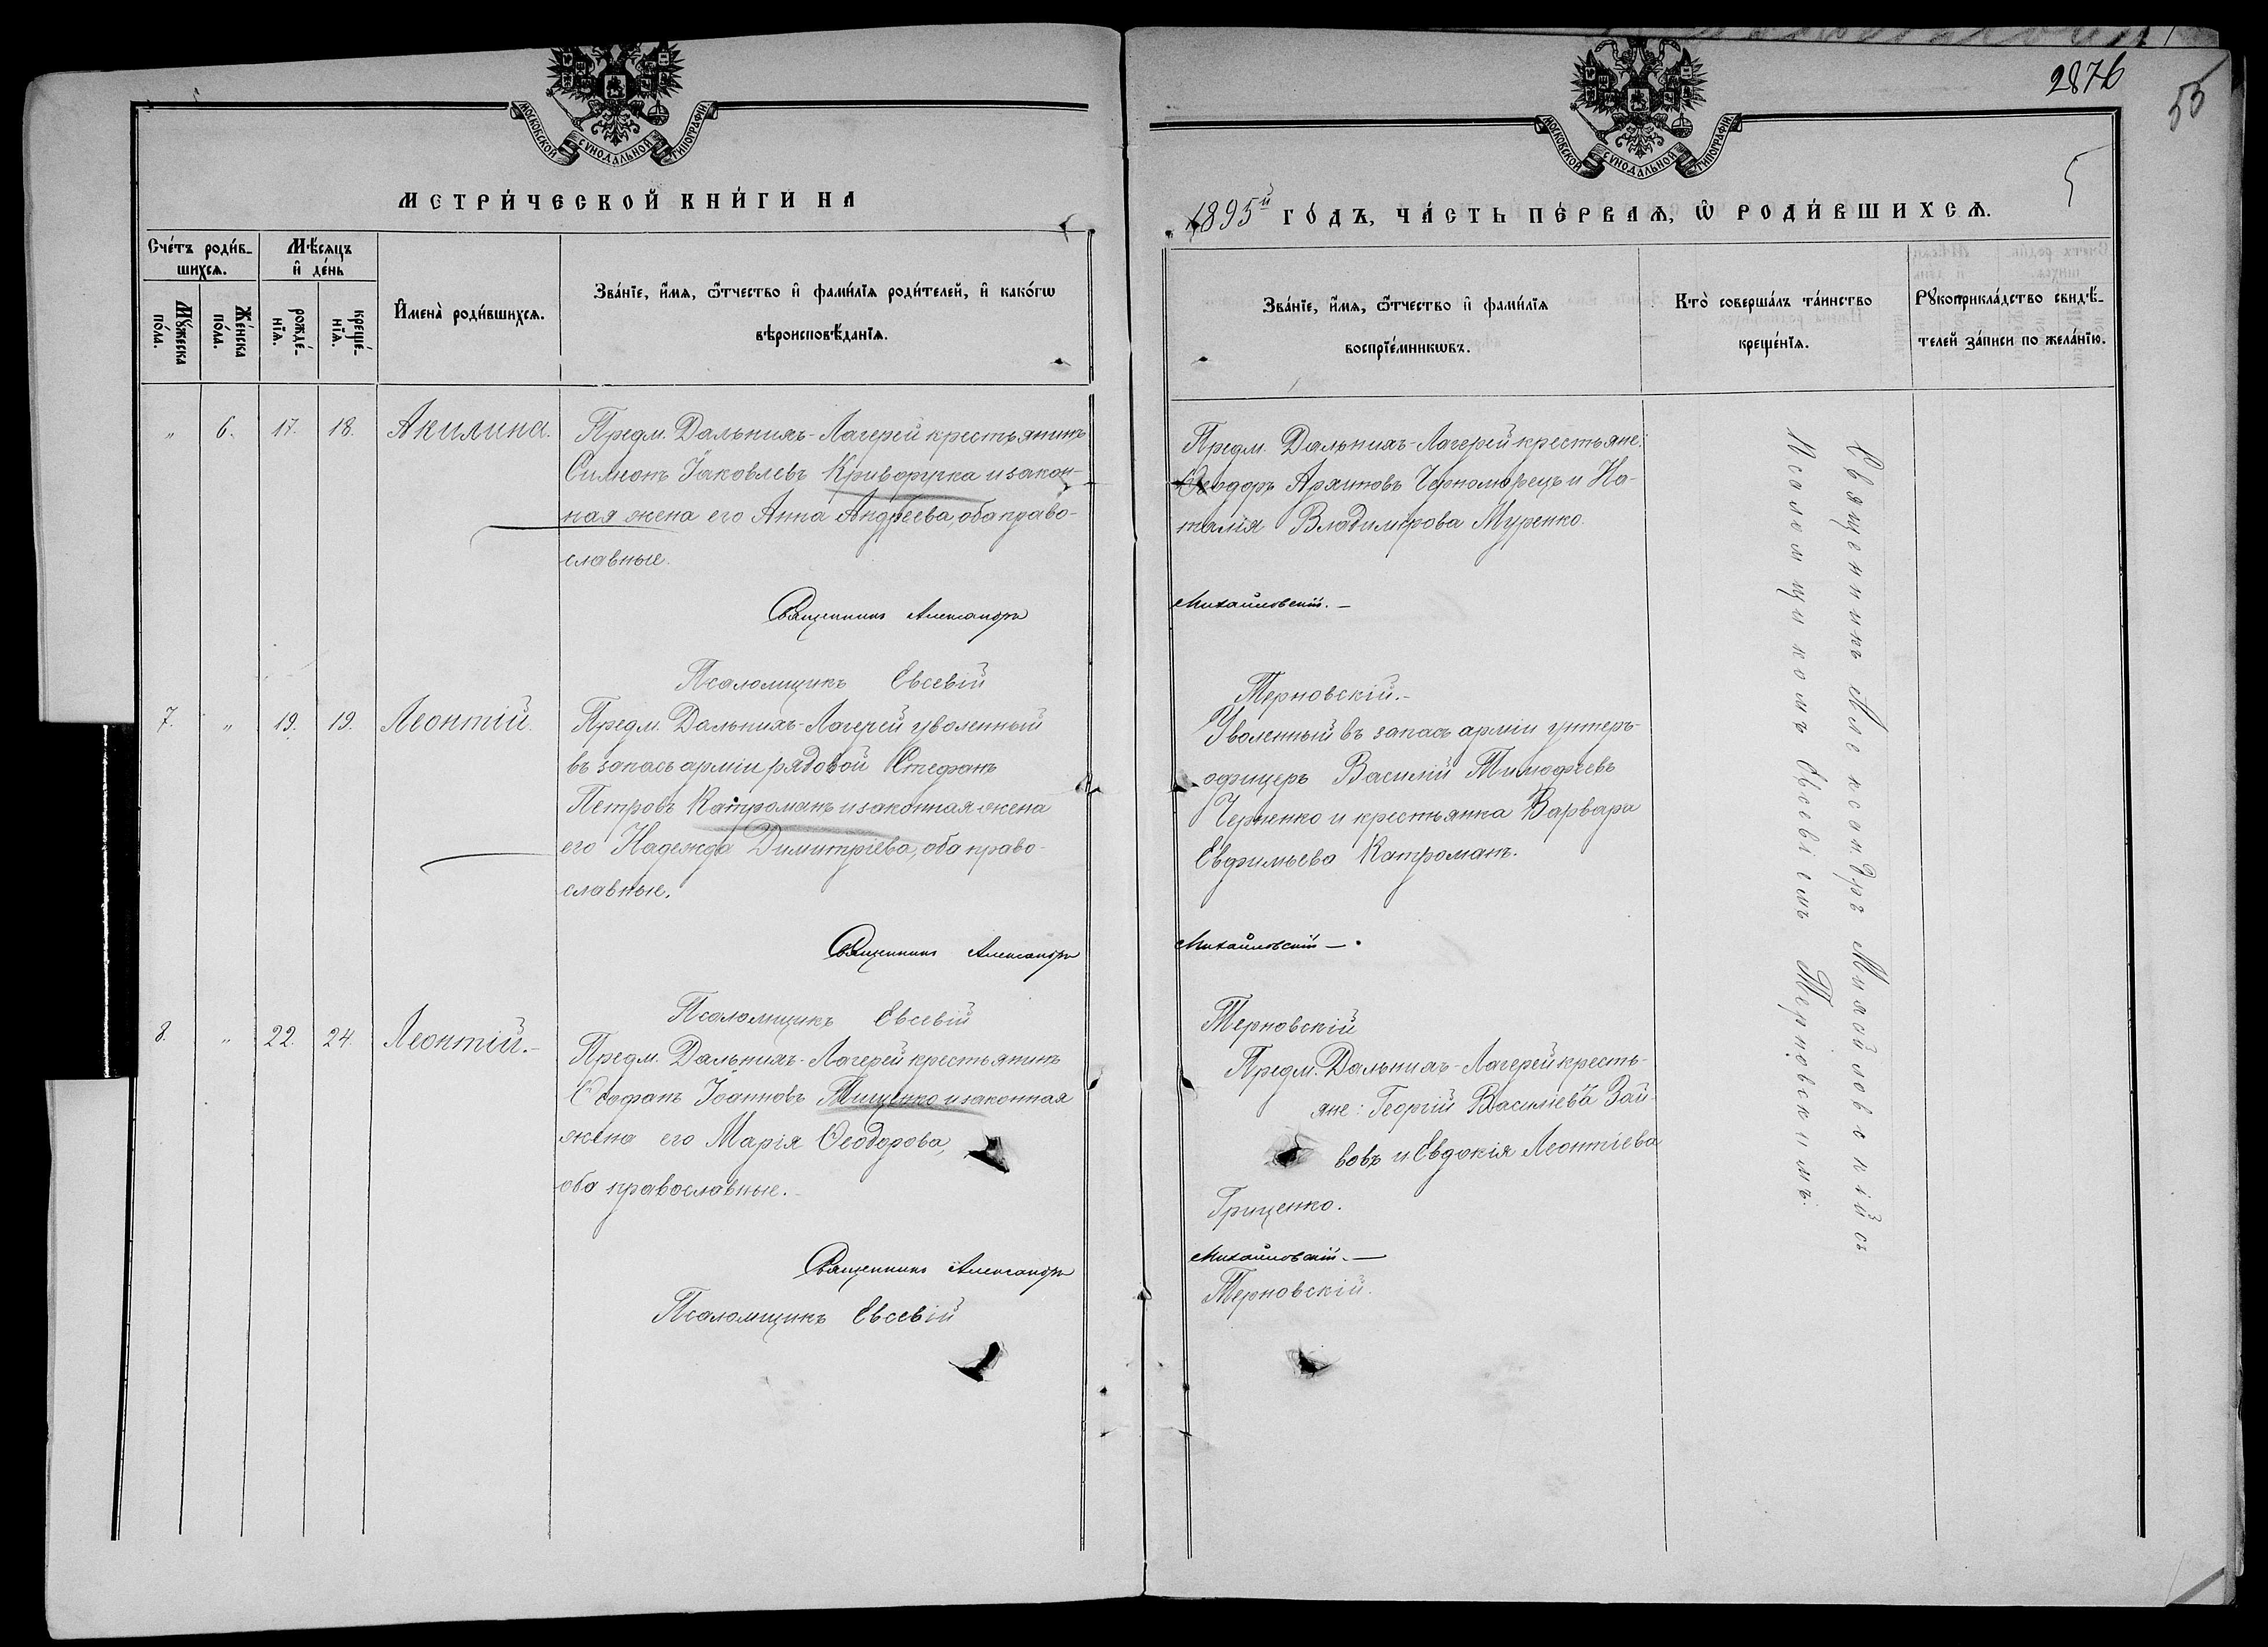 2876
55
5
МОСКОВСКОЙ СѴНОДАЛЬНОЙ ТИПОГРАФІИ
МЕТРИ́ЧЕСКОЙ КНИ́ГИ НА
Сче́тъ роди́в-
шихсѧ.
Мꙋ́жеска
по́ла.
Же́нска
по́ла.
Мѣ́сѧцъ
и҆ де́нь
рожде́-
нїѧ.
креще́-
нїѧ.
И҆мена̀ роди́вшихсѧ.
Зва́нїе, и҆́мѧ, ѻ҆́тчество и҆ фами́лїѧ роди́телей, и҆ како́гѡ
вѣроисповѣ́данїѧ.
„ 6. 17. 18. Акилина.
Предм. Дальнихъ-Лагерей крестьянинъ
Симеонъ Іаковлевъ Криворучка и закон-
ная жена его Анна Андреева, оба право-
славные.
Священникъ Александръ
Псаломщикъ Евсевій
7. „ 19. 19. Леонтій.
Предм. Дальнихъ-Лагерей уволенный
въ запасъ арміи рядовой Стефанъ
Петровъ Катроманъ и законная жена
его Надежда Димитріева, оба право-
славные.
Священникъ Александръ
Псаломщикъ Евсевій
8. „ 22. 24. Леонтій.-
Предм. Дальнихъ-Лагерей крестьянинъ
Іоанновъ Тищенко и законная
жена его Марія Ѳеодорова,
оба православные.-
Священникъ Александръ
Псаломщикъ Евсевій
МОСКОВСКОЙ СѴНОДАЛЬНОЙ ТИПОГРАФІИ
1895й ГО́ДЪ, ЧА́СТЬ ПЕ́РВАѦ, Ѡ҆ РОДИ́ВШИХСѦ.
Зва́нїе, и҆́мѧ, ѻ҆́тчество и҆ фами́лїѧ
воспрїе́мникѡвъ.
Кто̀ соверша́лъ та́инство
креще́нїѧ.
Рꙋкоприкла́дство свидѣ́-
телей за́писи по жела́нїю.
Предм. Дальнихъ-Лагерей крестьяне:
Ѳеодоръ Архиповъ Черноморецъ и На-
талія Владимірова Муренко.
Михайловскій.-
Терновскій.-
Уволенный въ запасъ арміи унтеръ-
офицеръ Василій Тимофеевъ
Черненко и крестьянка Варвара
Евфимьева Катроманъ.
Михайловскій-.
Терновскій
Предм. Дальнихъ-Лагерей кресть-
яне: Георгій Василіевъ Зай-
вовъ и Евдокія Леонтіева
Гриценко.
Михайловскій.-
Терновскій.
Священникъ Александръ Михайловскій съ
Псаломщикомъ Евсевіемъ Терновскимъ.